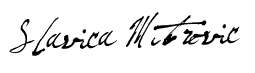 Slavica Mitrovic